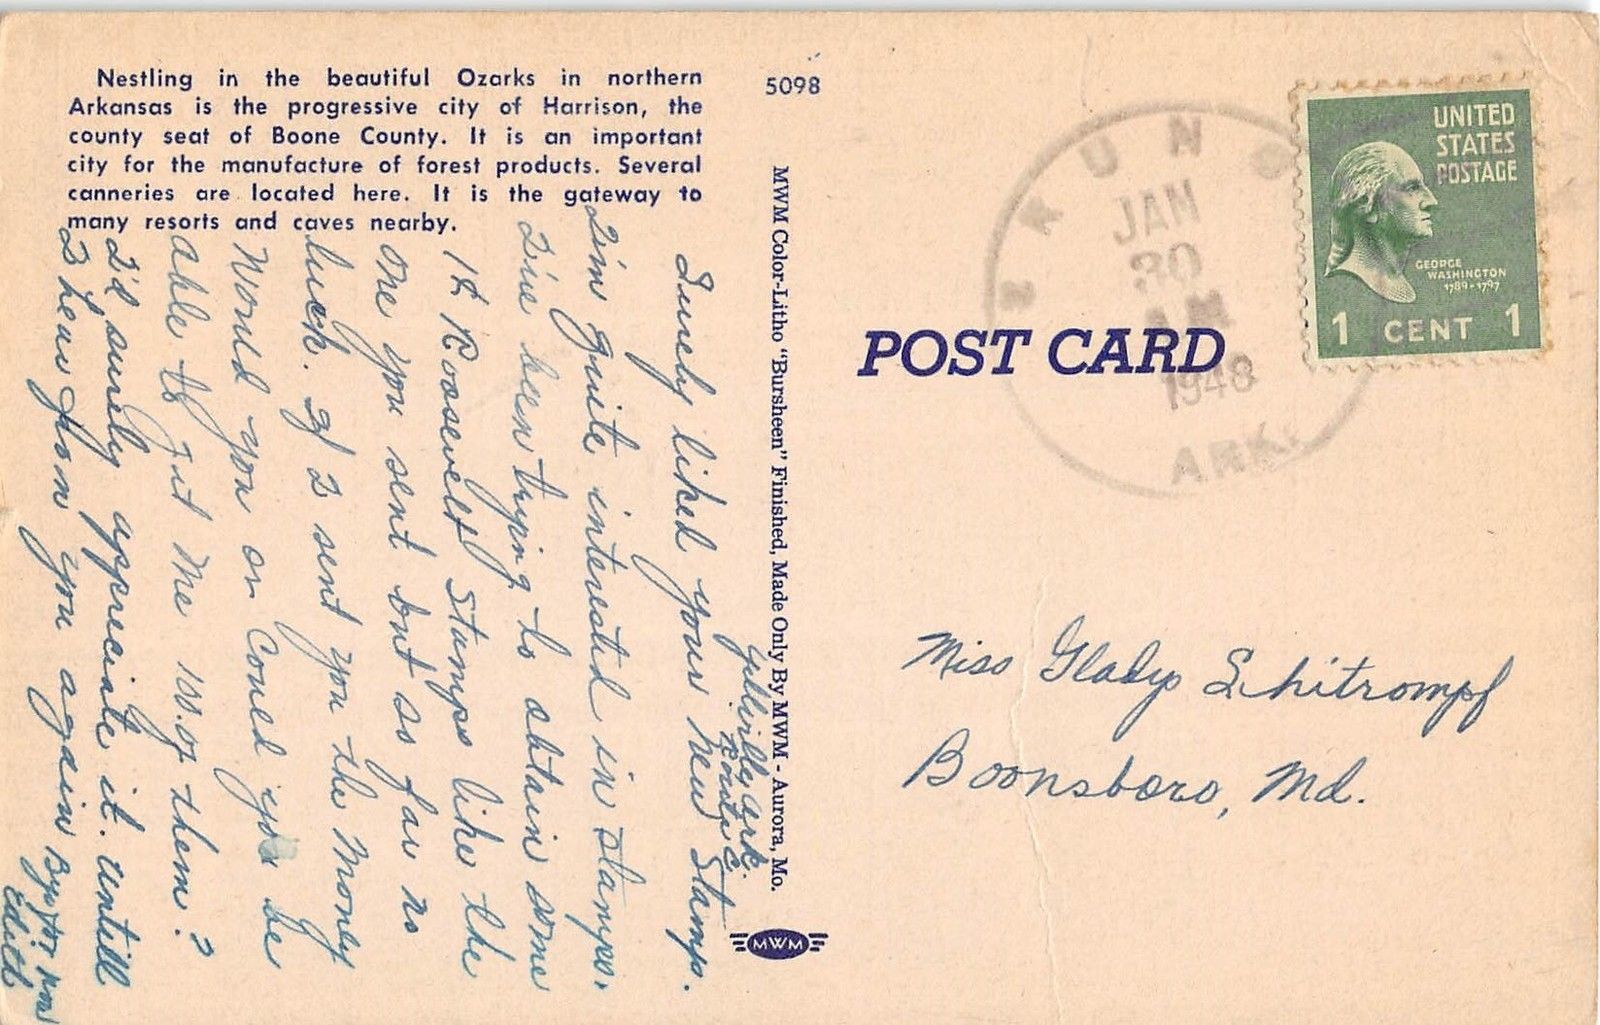 Nestling in the beautiful Ozarks in northern
Arkansas is the progressive city of Harrison, the
county seat of Boone County. It is an important
city for the manufacture of forest products. Several
canneries are located here. It is the gateway to
many resorts and caves nearby.
5098
MWM Color-Litho "Bursheen" Finished, Made Only By MWM - Aurora, Mo.
MWM
POST CARD
JAN
30
AM
1948
ARK.
UNITED
STATES
POSTAGE
GEORGE
WASHINGTON
1789-1797
1 CENT 1
Miss Gladys Schitrompf
Boonsboro, Md.
Yellville, Ark.
Route C.
Surely liked your New Stamp.
I'm quite interested in stamps.
I've been trying to obtain some
1¢ Roosevelt Stamps like the
one you sent but so far no
luck. If I sent you the Money
Would you or Could you be
able to git Me 100 of them?
I'd surely appreciate it. untill
I hear from you again
Edith